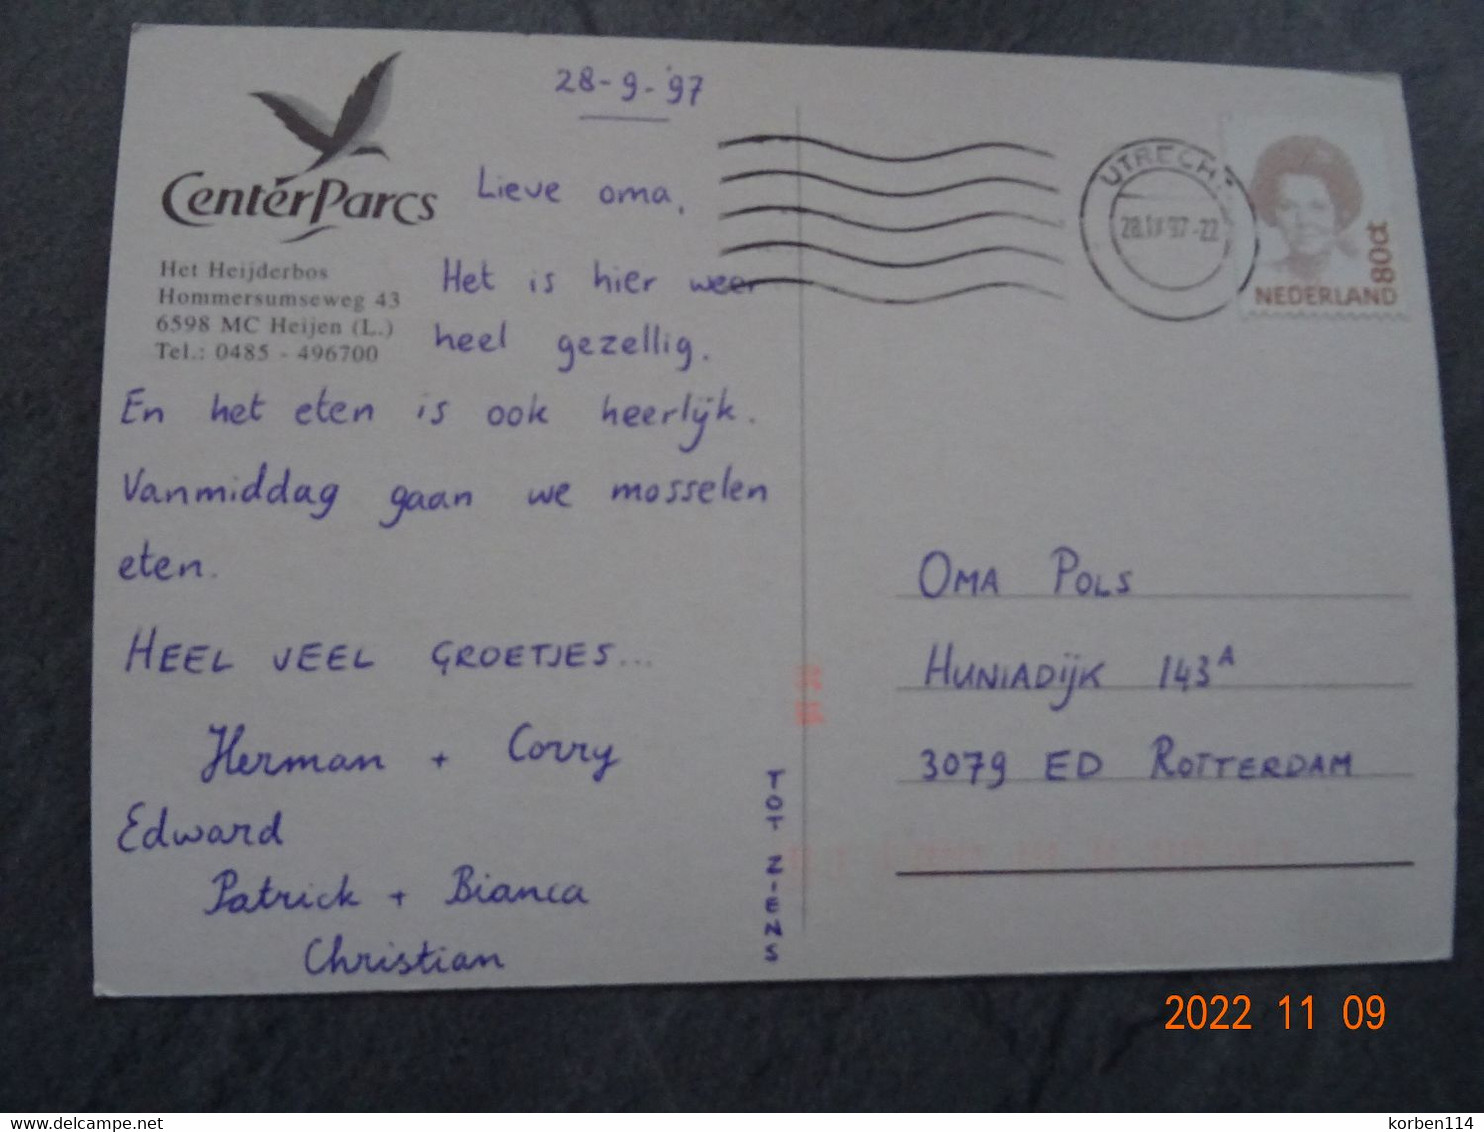 28-9-'97
CenterParcs
Lieve oma,
Het Heijderbos
Hommersumseweg 43
6598 MC Heijen (L.)
Tel.: 0485 - 496700
Het is hier weer
heel gezellig.
En het eten is ook heerlijk.
Vanmiddag gaan we mosselen
eten.
HEEL VEEL GROETJES...
Herman + Corry
Edward
Patrick + Bianca
Christian
TOT ZIENS
UTRECHT
28.IX 97-22
80ct
NEDERLAND
OMA POLS
HUNIADIJK 143A
3079 ED ROTTERDAM
2022 11 09
delcampe.net
korben114